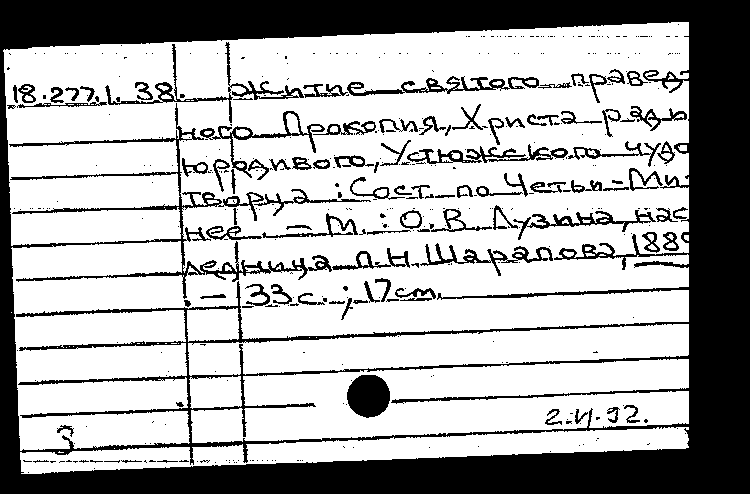 18.277.1.38. Житие святого правед-
ного Прокопия, Христа ради
юродивого, Устюжского чудо
творца : Сост. по Четьи-Ми-
нее. - М. : О.В. Лузина, нас
ледница П.Н. Шарапова, 1889
. - 33 с. ; 17 cm.
3